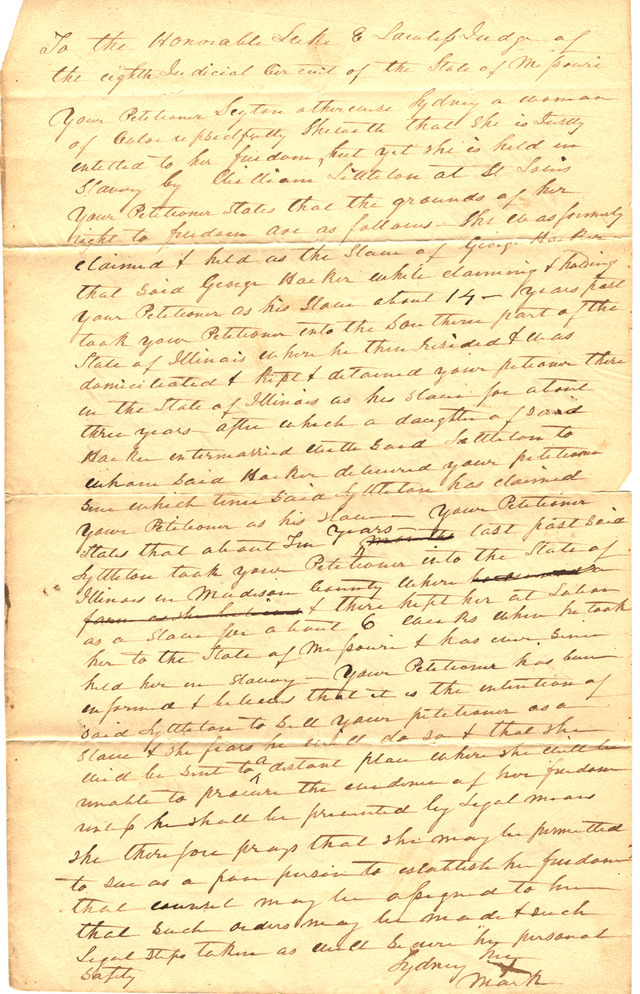 To the Honorable Luke E Lawless Judge of
the eighth Judicial Circuit of the State of Missouri
Your Petitioner Seyton otherwise Sydney a woman
of Color respectfully Sheweth that she is Justly
entitled to her freedom, but yet she is held in
Slavery by William Littleton at St Louis
Your Petitioner States that the grounds of her
right to freedom are as follows - She was formerly
claimed & held as the Slave of George Hacker
that Said George Hacker while claiming & holding
your Petitioner as his Slave about 14 - years past
took your Petitioner into the Southern part of the
State of Illinois where he then resided & was
domiciliated & kept & detained your petitioner there
in the State of Illinois as his Slave for about
three years - after which a daughter of Said
Hacker intermarried with Said Littleton to
whom Said Hacker delivered your petitioner
Since which time Said Lyttleton has claimed
your Petitioner as his Slave - Your Petitioner
States that about Ten years - last past Said
Lyttleton took your Petitioner into the State of
Illinois in Madison County where
& there kept her at Labor
as a Slave for about 6 weeks when he took
her to the State of Missouri & has ever Since
held her in Slavery - Your Petitioner has been
informed & believes that it is the intention of
Said Lyttleton to Sell your petitioner as a
Slave & she fears he will do so & that she
will be sent to a distant place where she will be
unable to procure the evidence of her freedom
unless he shall be prevented by Legal means
She therefore prays that she may be permitted
to sue as a poor person to establish her freedom
that counsel may be assigned to her
that Such orders may be made & such
Legal Steps taken as will Secure her personal
Safety
Sydney her
X
Mark